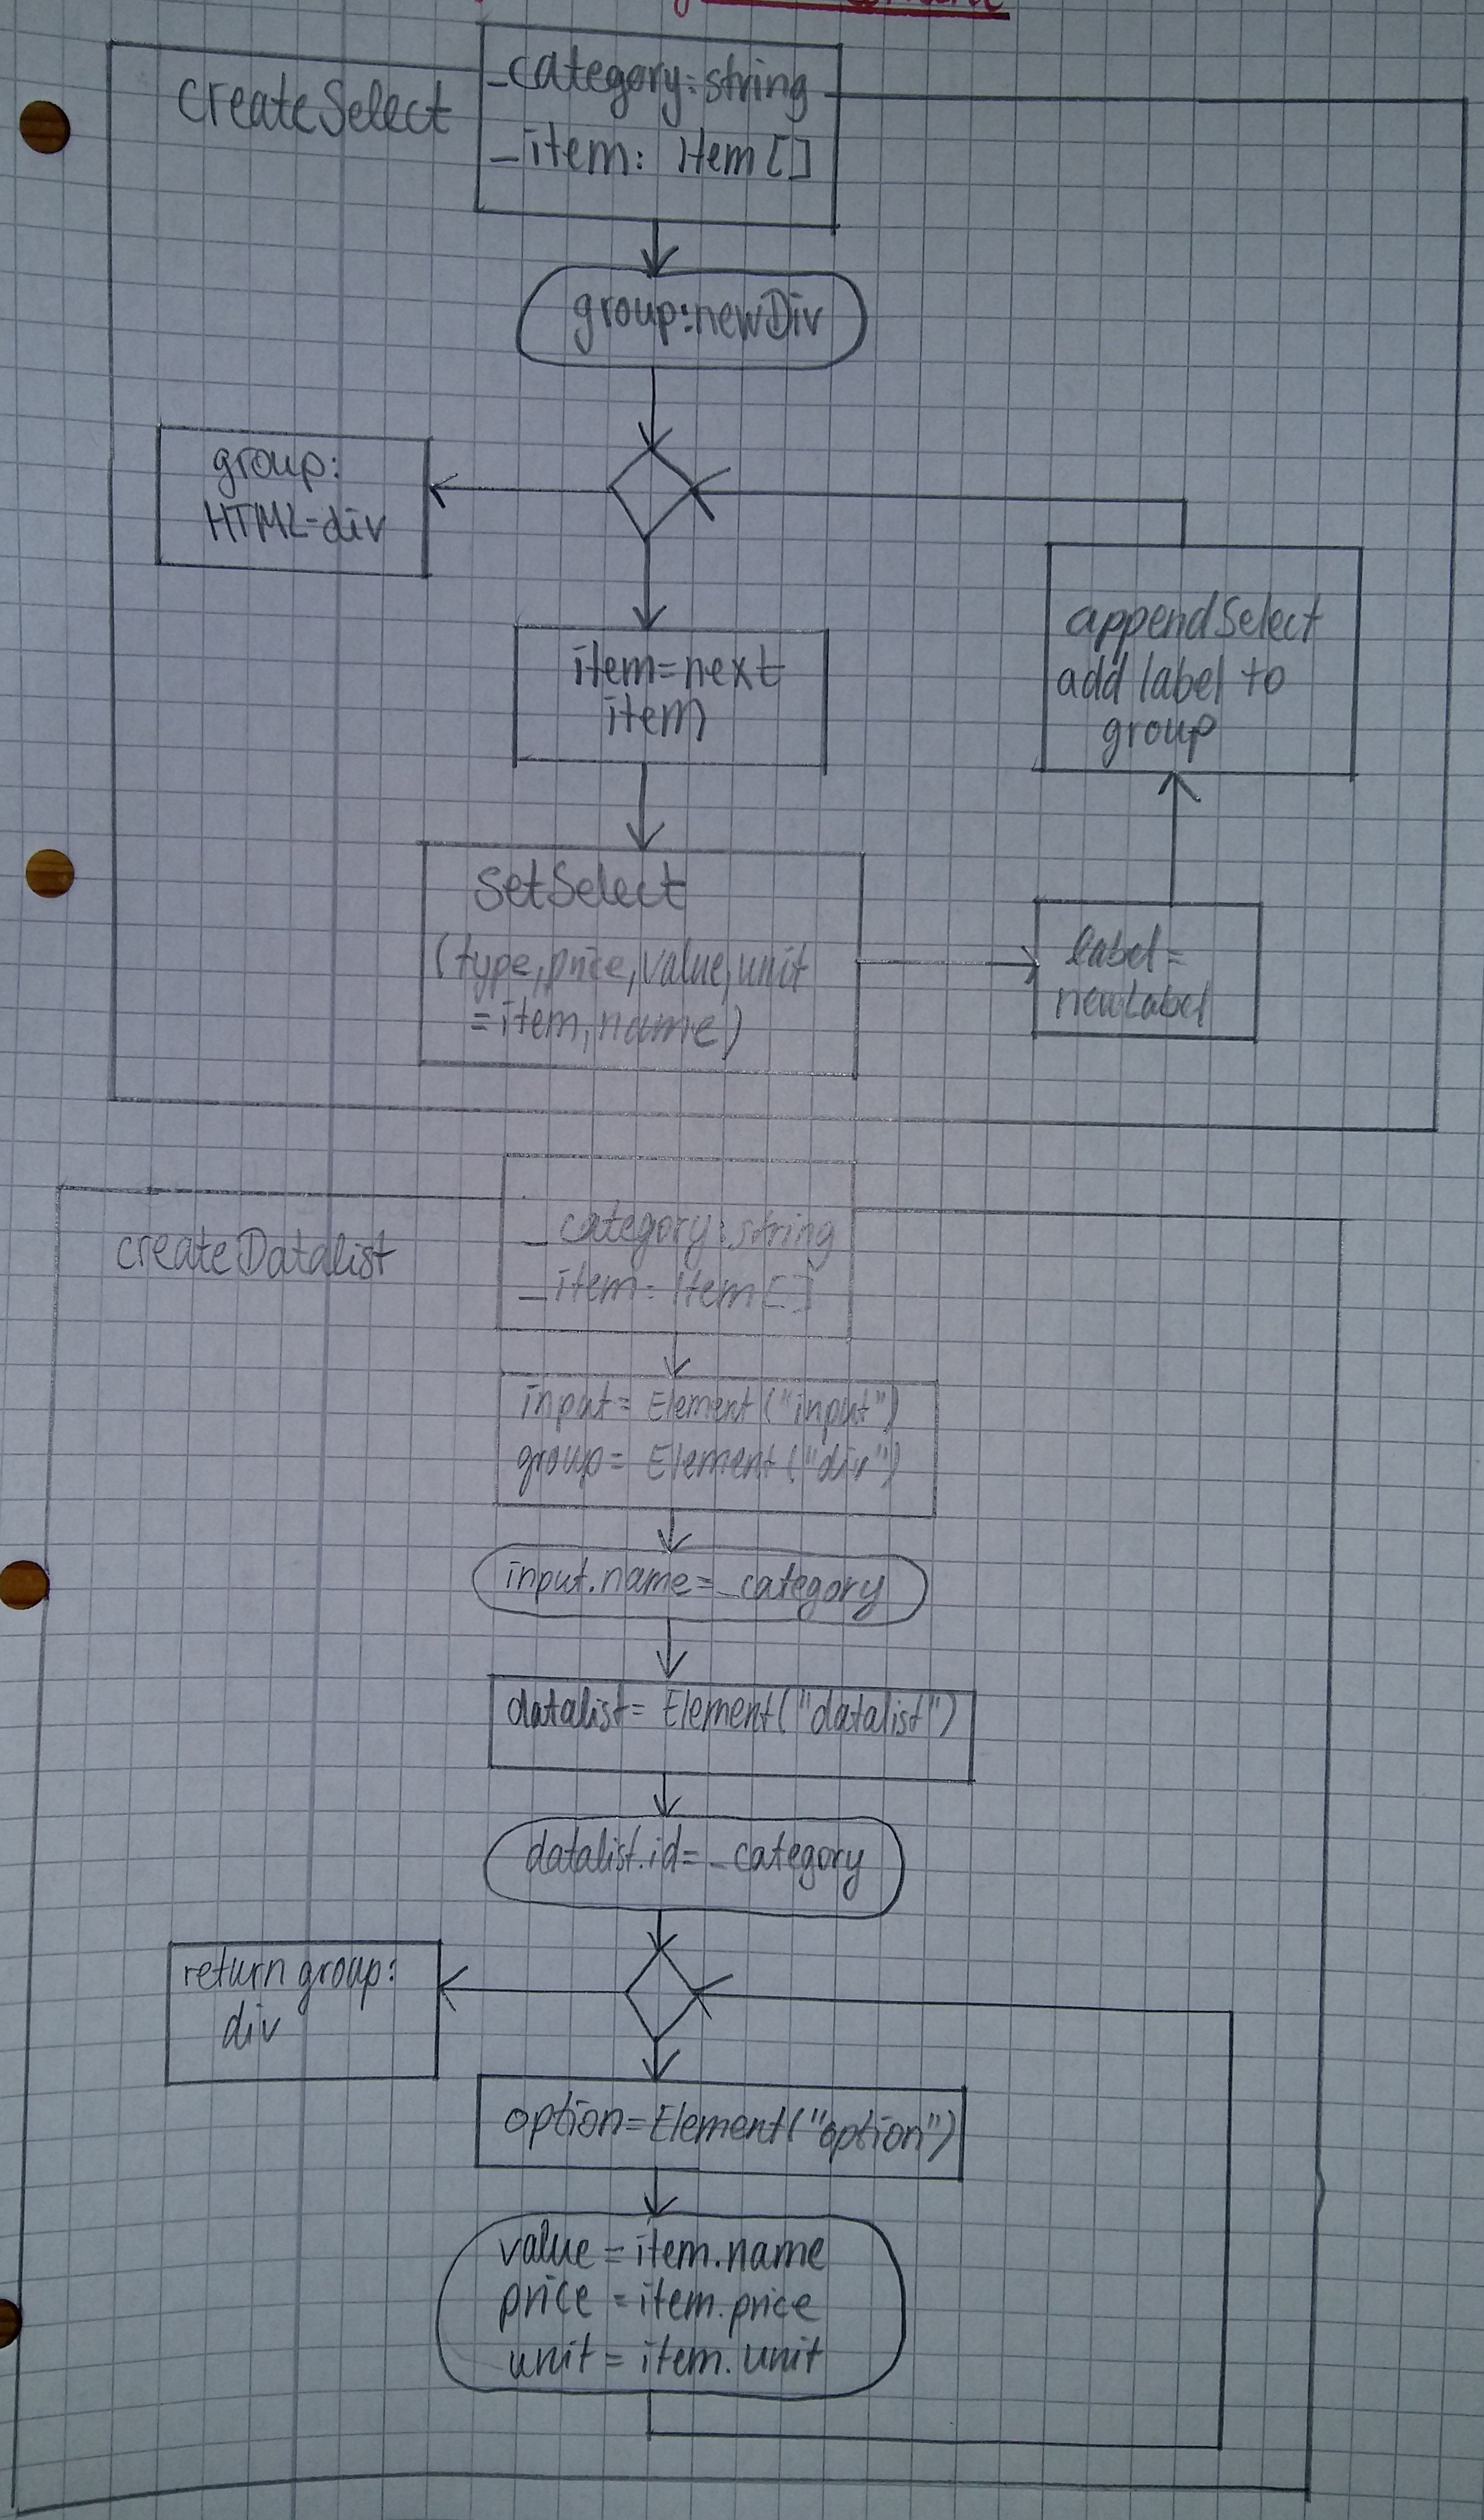 createSelect
_category: string
_item: Item[]
group: newDiv
group:
HTML-div
item=next
item
appendSelect
add label to
group
setSelect
(type, price, value, unit
=item, name)
label=
newLabel
createDatalist
_category: string
_item: Item[]
input= Element("input")
group= Element("div")
input.name=_category
datalist= Element("datalist")
datalist.id=_category
return group:
div
option=Element("option")
value=item.name
price=item.price
unit=item.unit